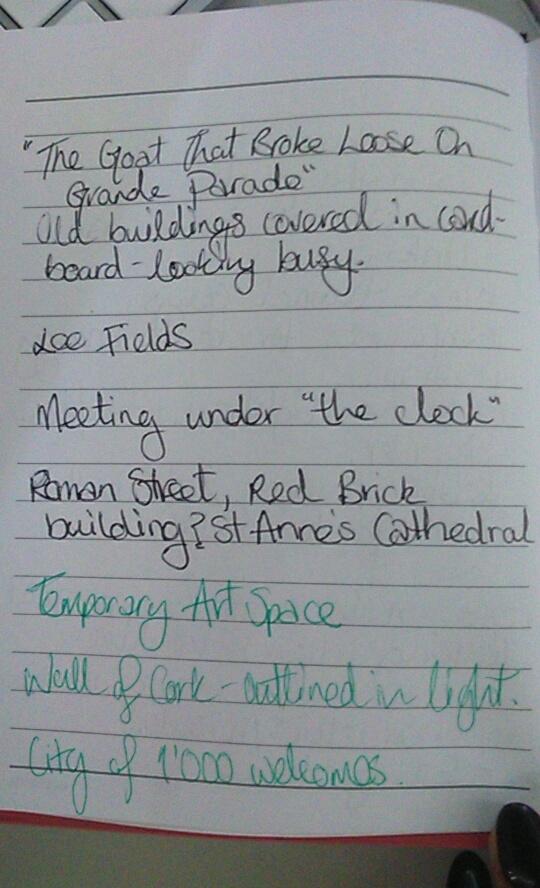 "The Goat That Broke Loose On
Grande Parade"
Old buildings covered in card-
board-looking busy.
Lee Fields
Meeting under "the clock"
Roman Street, Red Brick
building? St Anne's Cathedral
Temporary Art Space
Wall of Cork-outlined in light.
City of 1'000 welcomes.